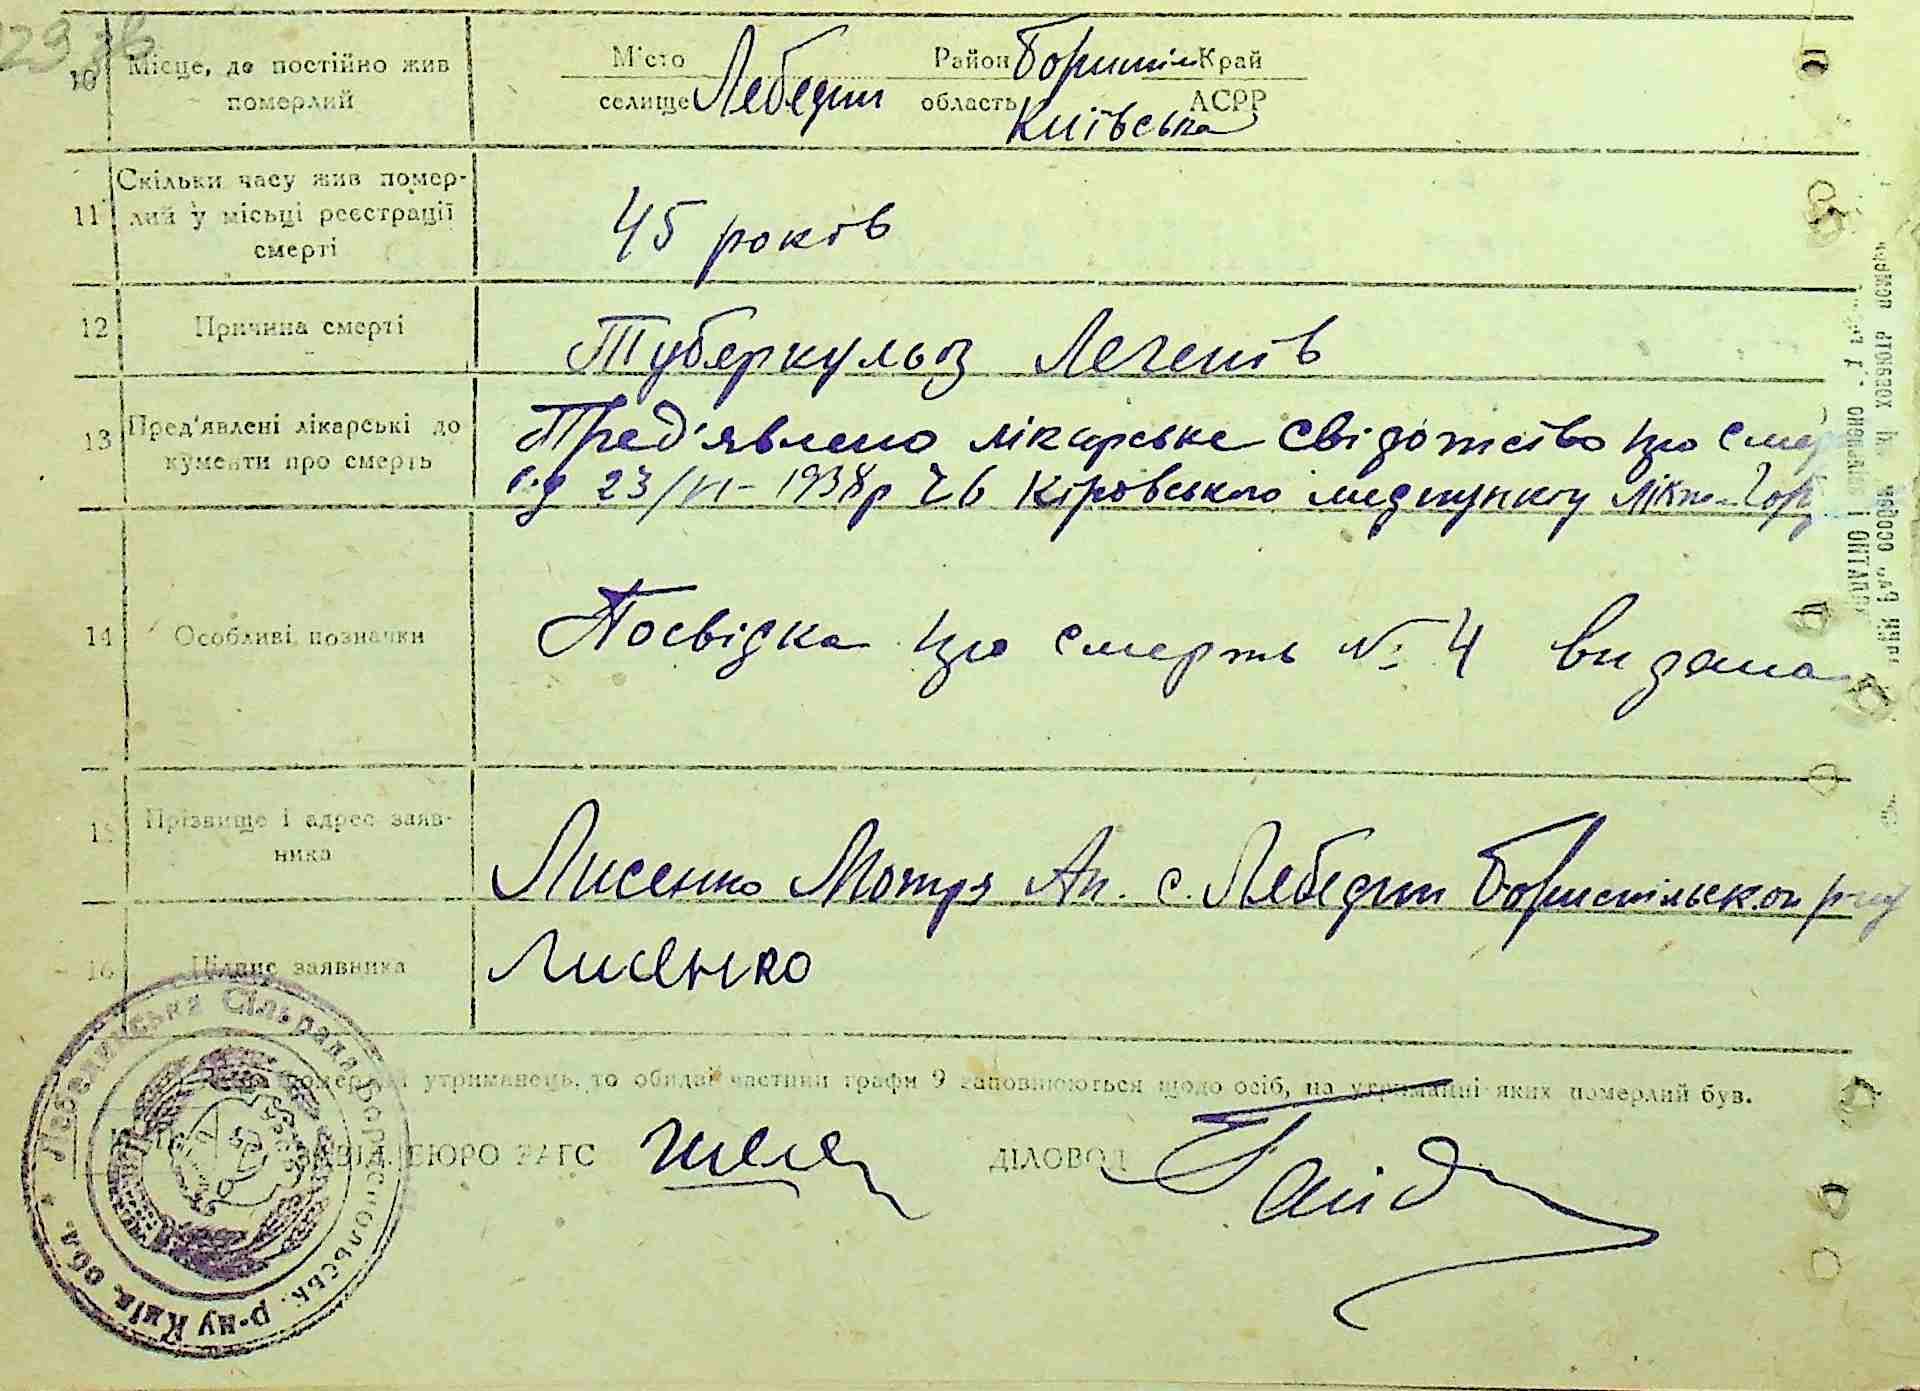 29 зв
10 Місце, де постійно жив померлий
Місто селище Лебедин Район Бориспіл Край
область Київська АСРР
11 Скільки часу жив помер-
лий у місьці реєстрації
смерті
45 років
12 Причина смерті
Туберкульоз Легенів
13 Пред'явлені лікарські до
кументи про смерть
Пред'явлено лікарське свідотство про смер
від 23/VI-1938р Кіровського медпункту
14 Особливі позначки
Посвідка про смерть № 4 видана
15 Прізвище і адрес заяв-
ника
Лисенко Мотря Ап. с. Лебедин Бориспільского р-ну
16 Підпис заявника
Лисенко
померлий утриманець, то обидві частини графи 9 заповнюються щодо осіб, на утриманні яких померлий був.
ЗАВІД. БЮРО ЗАГС
ДІЛОВОД Гайд
Лебединська Сільрада Бориспольськ. р-ну Київ. обл.